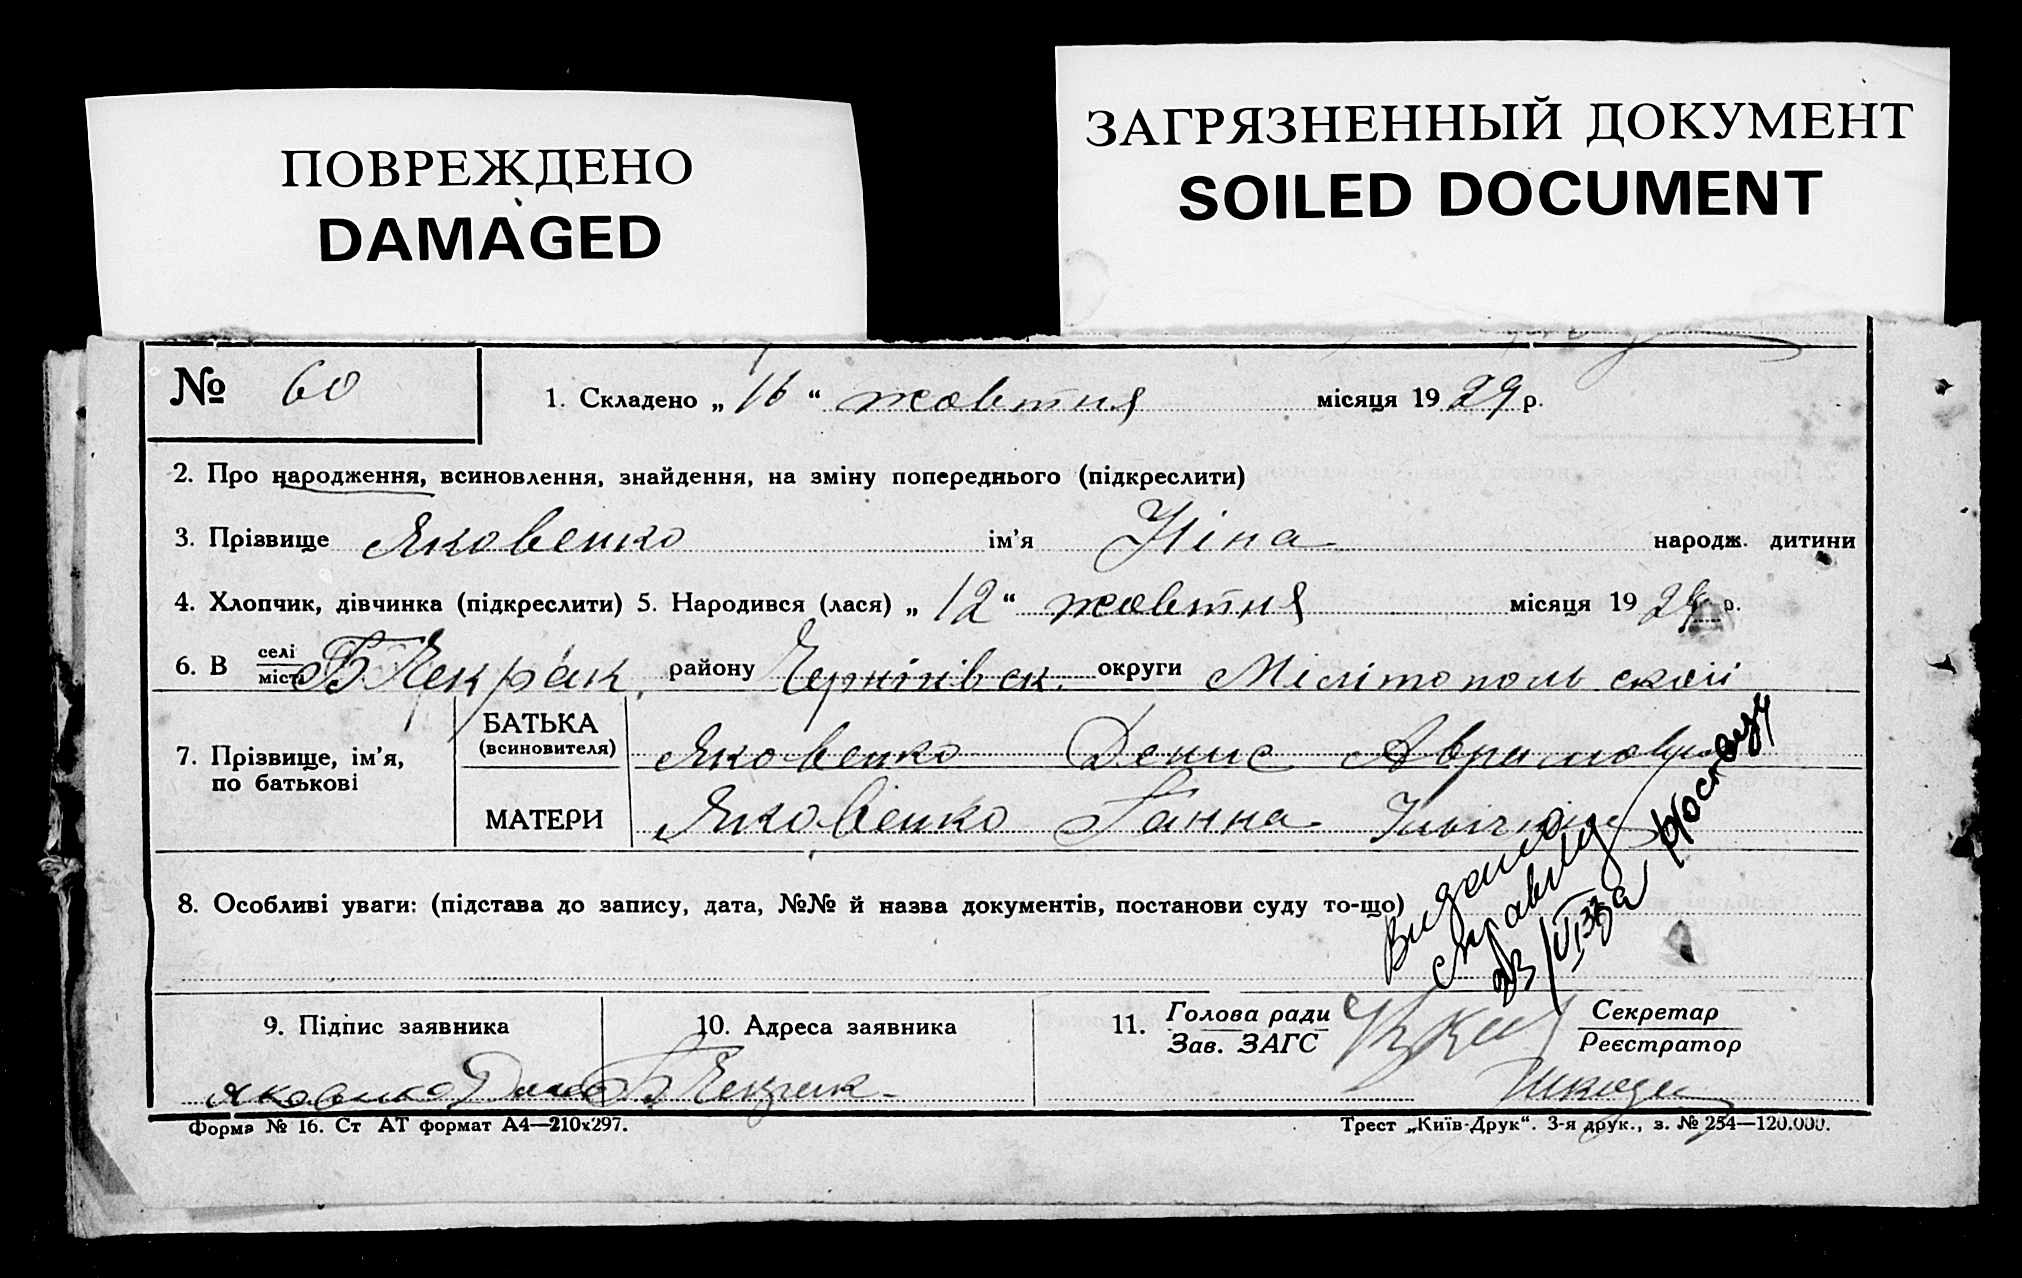 ПОВРЕЖДЕНО
DAMAGED
ЗАГРЯЗНЕННЫЙ ДОКУМЕНТ
SOILED DOCUMENT
№ 60
1. Складено „ 16 “ жовтня місяця 1929 р.
2. Про народження, всиновлення, знайдення, на зміну попереднього (підкреслити)
3. Прізвище Яковенко ім'я Ніна народж. дитини
4. Хлопчик, дівчинка (підкреслити) 5. Народився (лася) „ 12 “ жовтня місяця 1929 р.
6. В селі місті району Чернігівск. округи Мелітопольскій
7. Прізвище, ім'я, по батькові
БАТЬКА (всиновителя) Яковенко Денис
МАТЕРИ Яковенко Ганна
8. Особливі уваги: (підстава до запису, дата, №№ й назва документів, постанови суду то-що)
Видана
9. Підпис заявника
10. Адреса заявника
11. Голова ради
Зав. ЗАГС
Секретар
Реєстратор
Яковенко
Форма № 16. Ст АТ формат А4—210х297.
Трест „Київ-Друк“. 3-я друк., з. № 254—120.000.